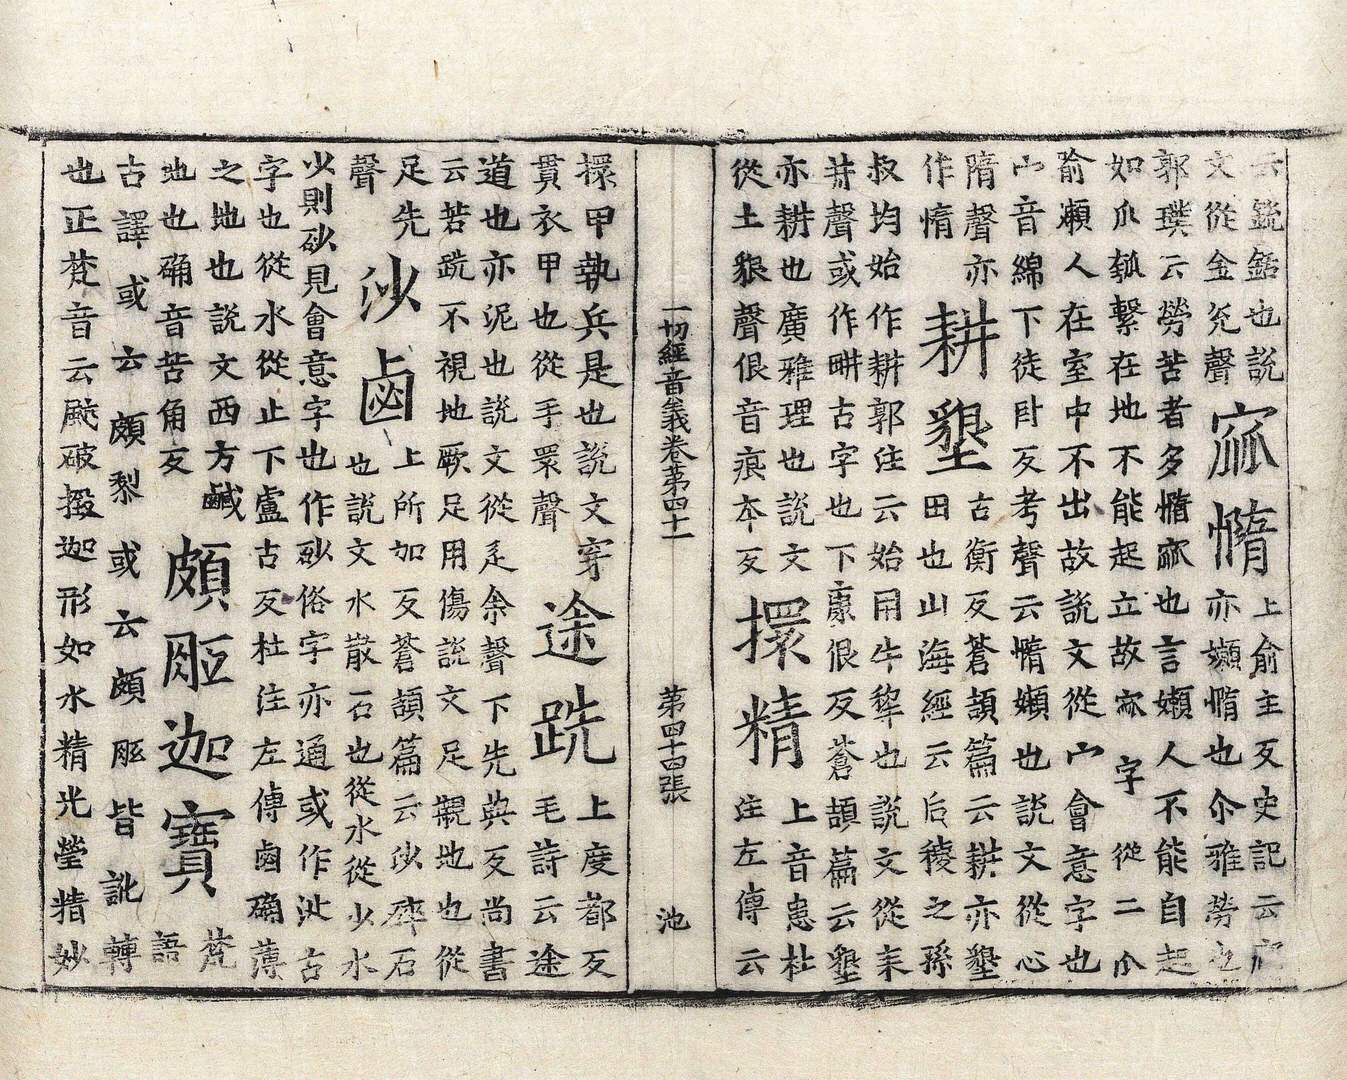 云鋭銛也說
文從金兊聲
㼌惰
上俞主反史記云㼌
亦嬾惰也尒雅勞也
郭璞云勞苦者多惰㼌也言嬾人不能自起
如瓜瓠繫在地不能起立故㼌字從二瓜
俞瀬人在室中不出故說文從宀會意字也
宀音綿下徒卧反考聲云惰嬾也說文從心
隋聲亦
作惰
耕墾
古衡反蒼頡篇云耕亦墾
田也山海經云后稷之孫
叔均始作耕郭注云始用牛犂也說文從耒
井聲或作畊古字也下康佷反蒼頡篇云墾
亦耕也廣雅理也說文
從土豤聲佷音痕本反
擐精
上音患杜
注左傳云
一切經音義卷第四十一
第四十四張
池
擐甲執兵是也說文穿
貫衣甲也從手瞏聲
途跣
上度都反
毛詩云途
道也亦泥也說文從辵余聲下先典反尚書
云若跣不視地厥足用傷說文足親地也從
足先
聲
沙鹵
上所加反蒼頡篇云沙磧石
也說文水散石也從水從少水
少則砂見會意字也作砂俗字亦通或作沚古
字也從水從止下盧古反杜注左傳鹵确薄
之地也說文西方鹹
地也确音苦角反
頗胝迦寶
梵
語
古譯或云頗黎或云頗胝皆訛轉
也正梵音云颭破置迦形如水精光瑩精妙